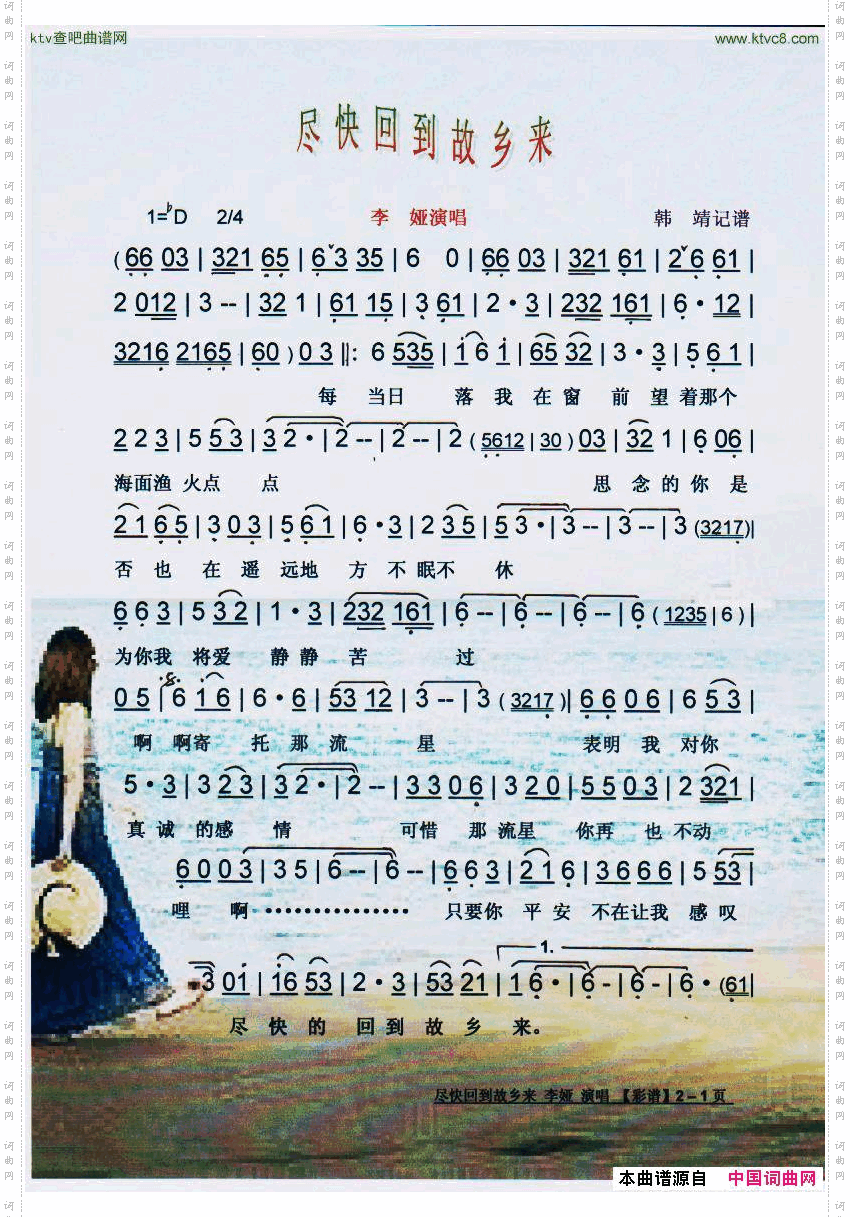 ktv查吧曲谱网 www.ktvc8.com
尽快回到故乡来
1=♭D 2/4 李 娅演唱 韩 靖记谱
(66 03 | 321 65 | 6 3 35 | 6 0 | 66 03 | 321 61 | 2 6 61 |
2 012 | 3 -- | 32 1 | 61 15 | 3 61 | 2 · 3 | 232 161 | 6 · 12 |
3216 2165 | 60 ) 03 ‖: 6 535 | i 6 i | 65 32 | 3 · 3 | 5 6 1 |
每 当日 落 我 在 窗 前 望 着那个
2 2 3 | 5 5 3 | 3 2 · | 2 -- | 2 -- | 2 (5612 | 30) 03 | 32 1 | 6 06 |
海面渔 火点 点 思 念 的 你 是
2 1 6 5 | 3 0 3 | 5 6 1 | 6 · 3 | 2 3 5 | 5 3 · | 3 -- | 3 -- | 3 (3217) |
否 也 在 遥 远地 方 不 眠不 休
6 6 3 | 5 3 2 | 1 · 3 | 232 161 | 6 -- | 6 -- | 6 -- | 6 (1235 | 6 ) |
为你我 将爱 静 静 苦 过
0 5 | 6 i 6 | 6 · 6 | 53 12 | 3 -- | 3 (3217) | 6 6 0 6 | 6 5 3 |
啊 啊寄 托 那 流 星 表明 我 对你
5 · 3 | 3 2 3 | 3 2 · | 2 -- | 3 3 0 6 | 3 2 0 | 5 5 0 3 | 2 321 |
真 诚 的感 情 可惜 那 流星 你再 也 不动
6 0 0 3 | 3 5 | 6 -- | 6 -- | 6 6 3 | 2 1 6 | 3 6 6 6 | 5 53 |
哩 啊 ··············· 只要你 平 安 不在让我 感 叹
1.
3 01 | i6 53 | 2 · 3 | 53 21 | 1 6 · | 6 - | 6 - | 6 · (61 |
尽 快 的 回 到 故 乡 来。
尽快回到故乡来 李娅 演唱 【彩谱】2-1页
本曲谱源自 中国词曲网